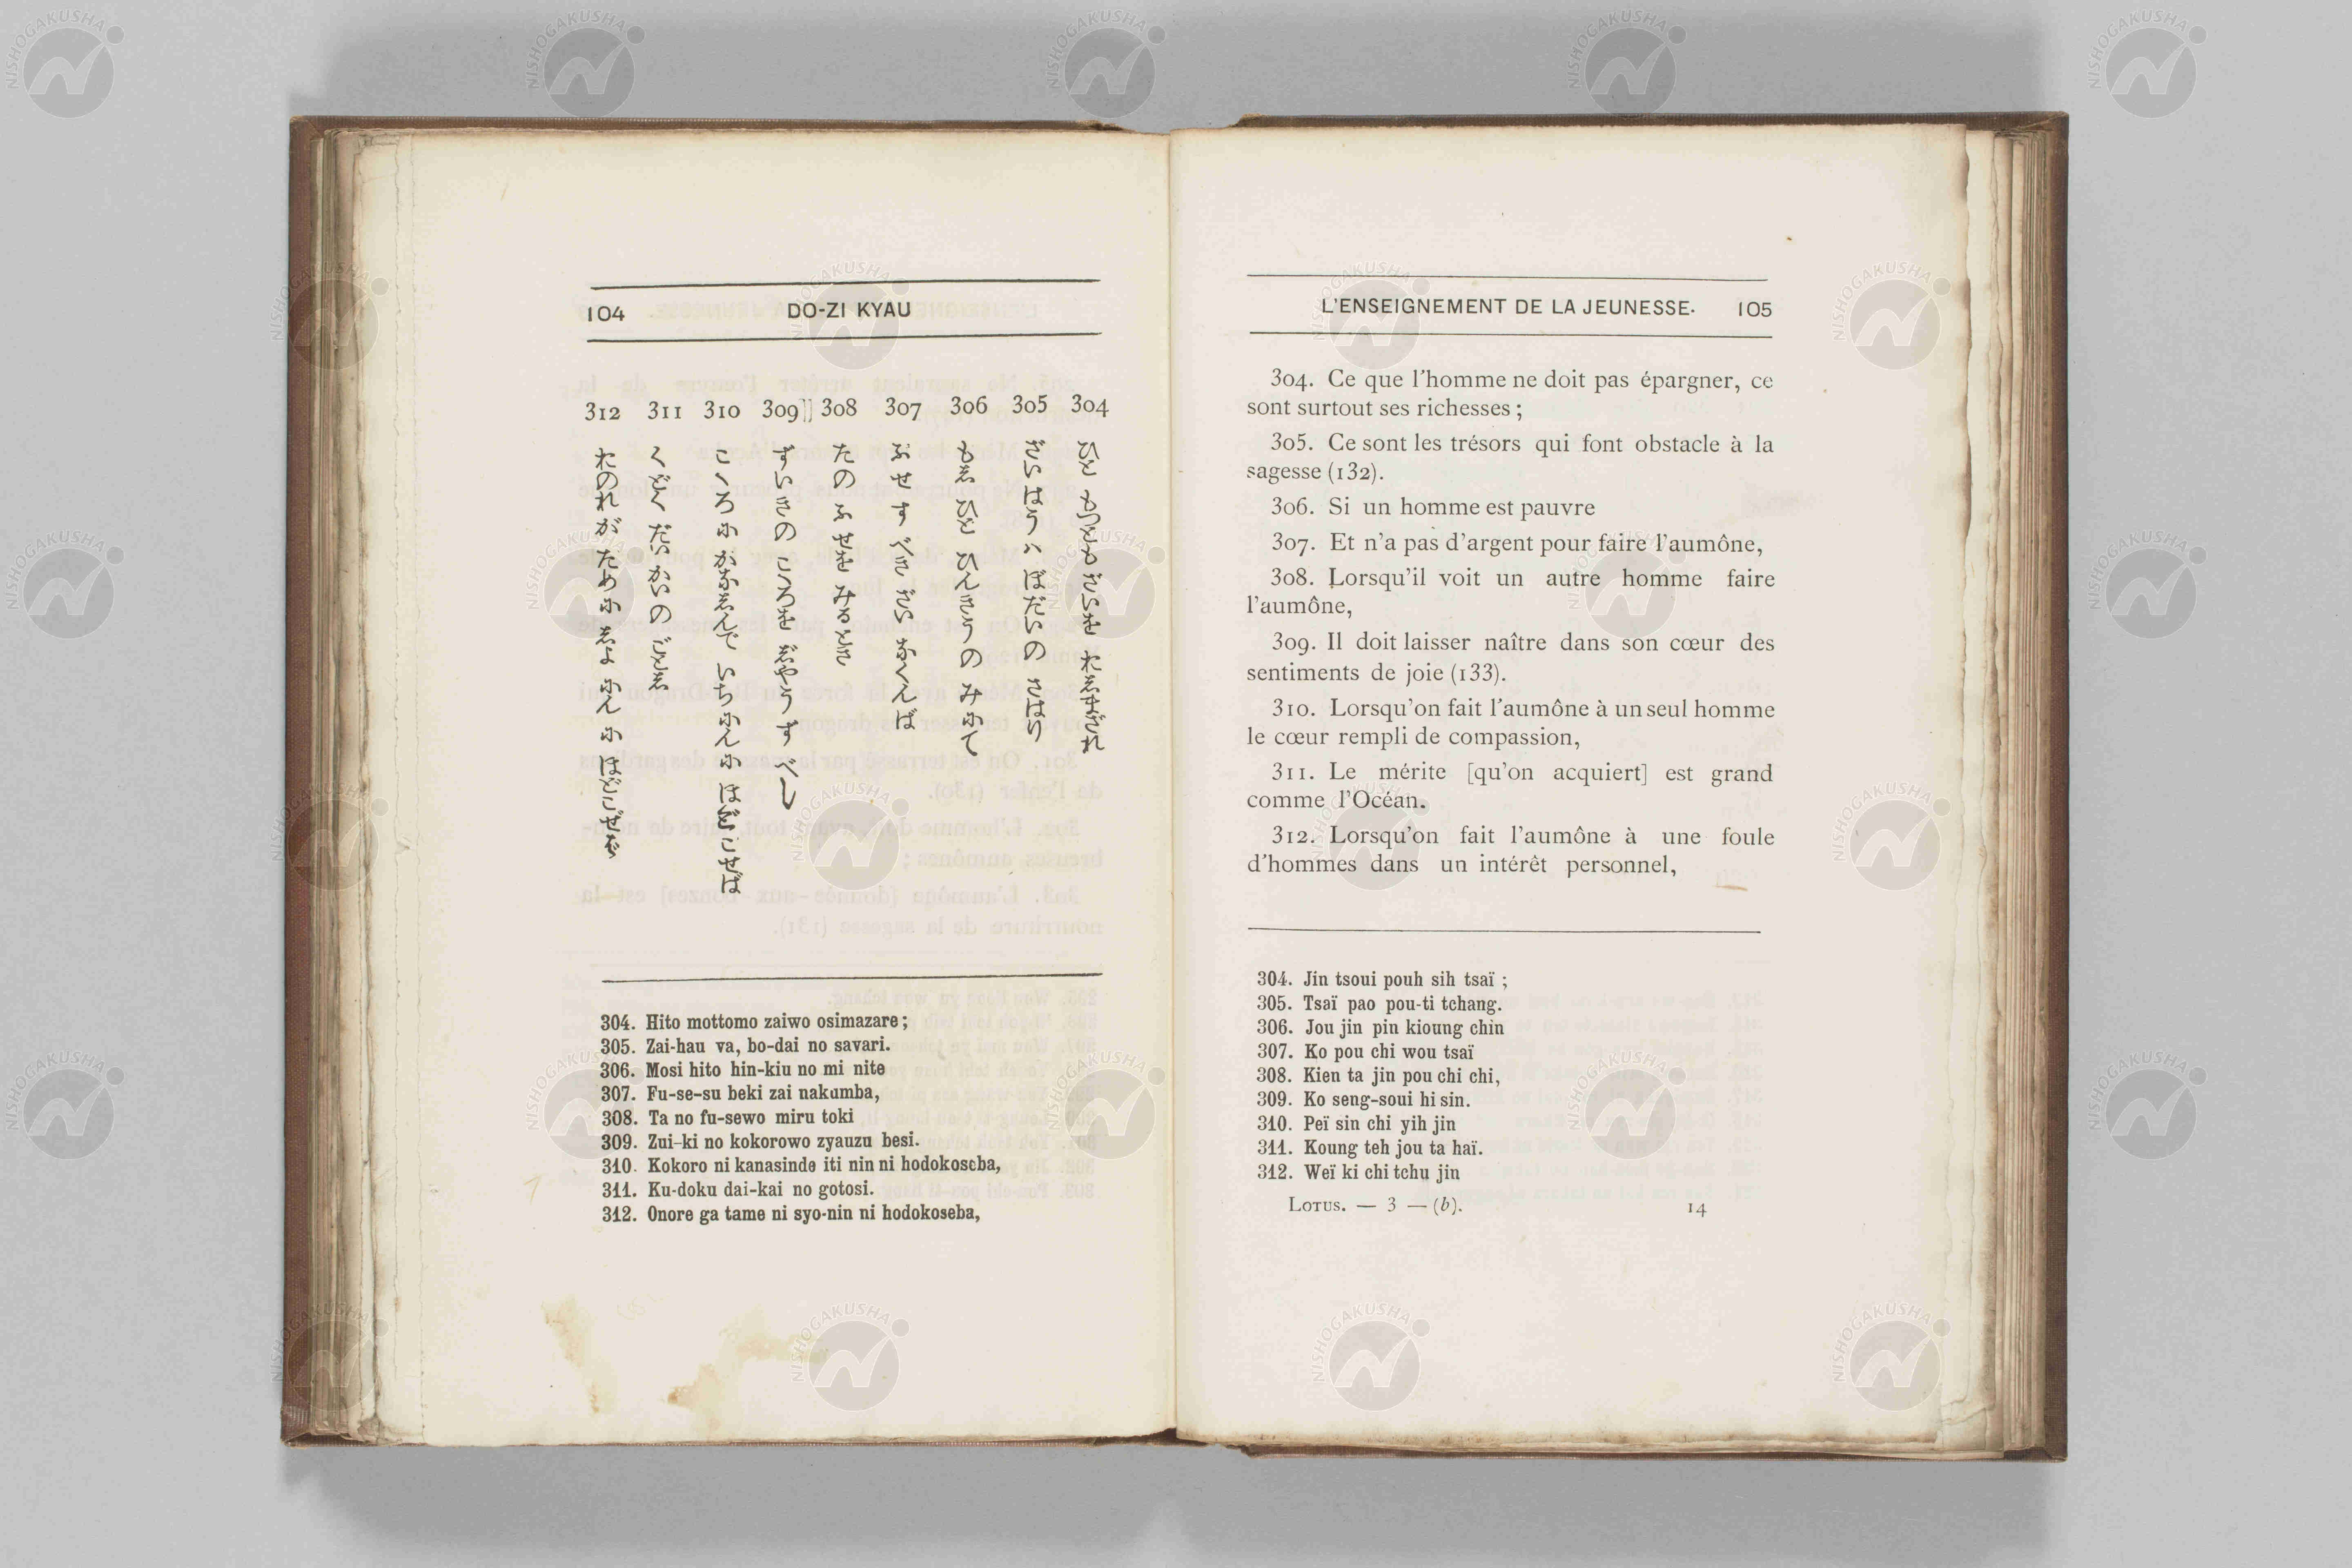 104 DO-ZI KYAU
312 311 310 309 308 307 306 305 304
ひと もつとも ざいを おしまざれ
ざいはう ハ ぼだいの さはり
もし ひと ひんきうの みにて
ふせ す べき ざい なくんば
たの ふせを みるとき
ずいきの こゝろを じやうず べし
こゝろに かなしんで いちにんに ほどこせば
くどく だいかいの ごとし
おのれが ために しよにんに ほどこせば
304. Hito mottomo zaiwo osimazare ;
305. Zai-hau va, bo-dai no savari.
306. Mosi hito hin-kiu no mi nite
307. Fu-se-su beki zai nakumba,
308. Ta no fu-sewo miru toki
309. Zui-ki no kokorowo zyauzu besi.
310. Kokoro ni kanasinde iti nin ni hodokoseba,
311. Ku-doku dai-kai no gotosi.
312. Onore ga tame ni syo-nin ni hodokoseba,
L'ENSEIGNEMENT DE LA JEUNESSE. 105
304. Ce que l'homme ne doit pas épargner, ce
sont surtout ses richesses ;
305. Ce sont les trésors qui font obstacle à la
sagesse (132).
306. Si un homme est pauvre
307. Et n'a pas d'argent pour faire l'aumône,
308. Lorsqu'il voit un autre homme faire
l'aumône,
309. Il doit laisser naître dans son cœur des
sentiments de joie (133).
310. Lorsqu'on fait l'aumône à un seul homme
le cœur rempli de compassion,
311. Le mérite [qu'on acquiert] est grand
comme l'Océan.
312. Lorsqu'on fait l'aumône à une foule
d'hommes dans un intérêt personnel,
304. Jin tsoui pouh sih tsaï ;
305. Tsaï pao pou-ti tchang.
306. Jou jin pin kioung chin
307. Ko pou chi wou tsaï
308. Kien ta jin pou chi chi,
309. Ko seng-soui hi sin.
310. Peï sin chi yih jin
311. Koung teh jou ta haï.
312. Weï ki chi tchu jin
LOTUS. — 3 — (b). 14
NISHOGAKUSHA